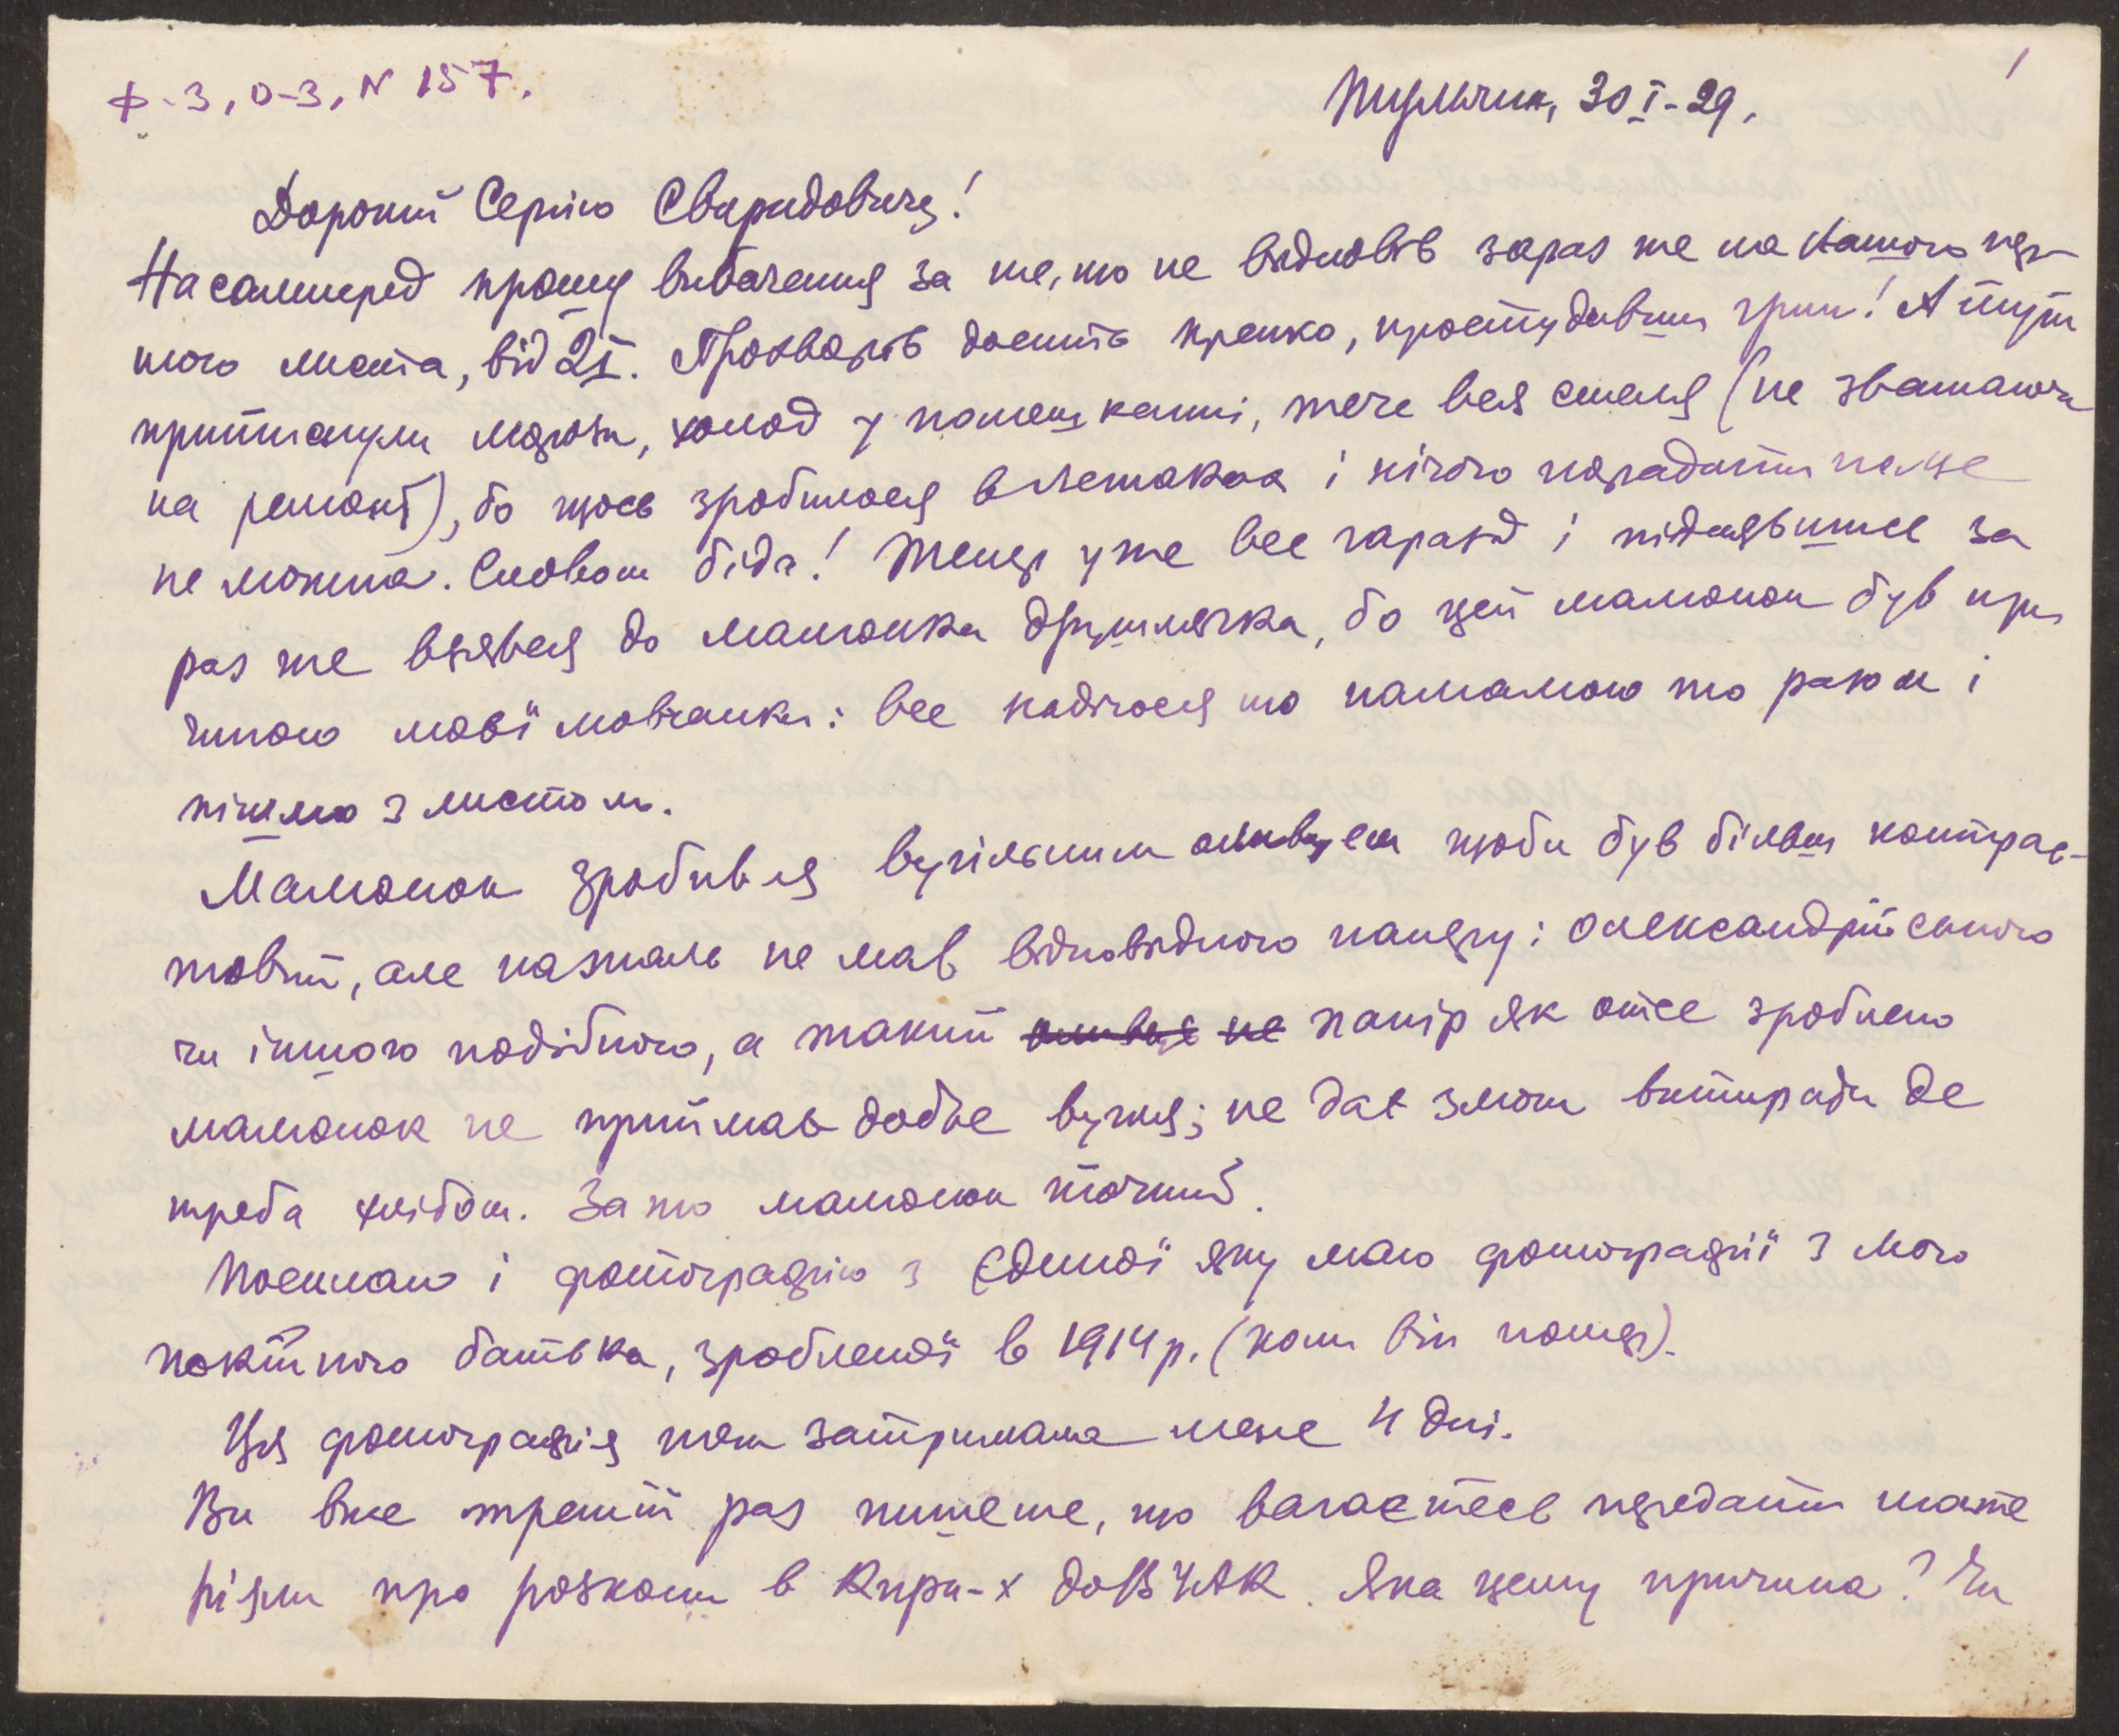 Ф-3, О-3, N 157.
1
Тульчин, 30 I-29.
Дорогий Сергію Свиридовичу!
Насамперед прошу вибачення за те, що не відповів зараз же на Вашого цін-
ного листа, від 2I. Прохворів досить крепко, простудивши грип! А тут
притиснули морози, холод у помешканні, тече вся стеля (не зважаючи
на ремонт), бо щось зробилося в летаках і нічого порадити поде
не можна. Словом біда! Тепер уже все гаразд і піднявшися за
раз же взявся до малюнка друшлячка, бо цей малюнок був при
чиною моєї мовчанки: все надіюся що намалюю то разом і
пішлю з листом.
Малюнок зробився вугільним оливцем щоби був більш контрас-
товий, але нажаль не мав відповідного паперу: олександрійського
чи іншого подібного, а такий папір як отсе зроблено
малюнок не приймає добре вугля; не дає змоги витирати де
треба хлібом. Зато малюнок точний.
Посилаю і фотографію з єдиної яку маю фотографії з мого
покійного батька, зробленої в 1914 р. (коли він помер).
Ця фотографія теж затримала мене 4 дні.
Ви вже третій раз пишете, що вагаєтесь передати мате
ріяли про розкопи в Кири-х до ВУАК. Яка цьому причина? Чи